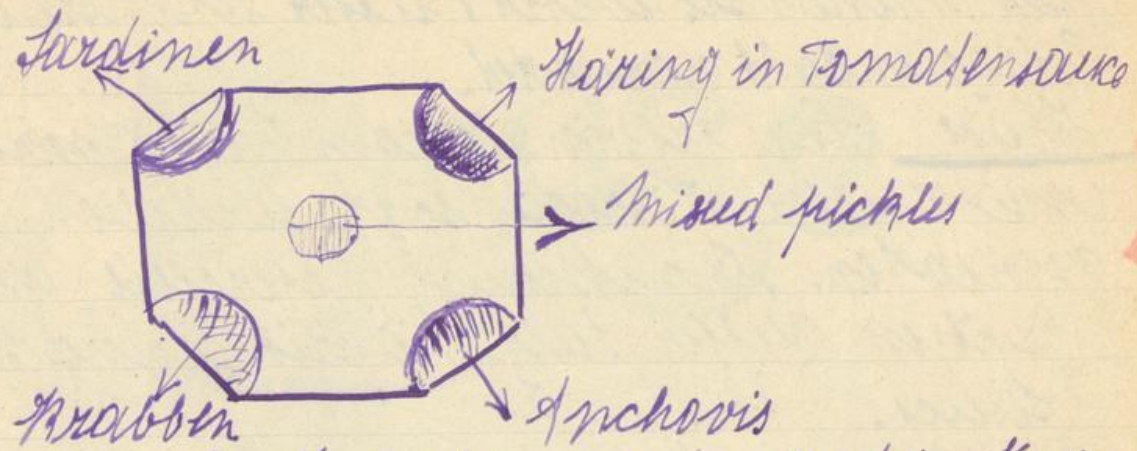 Sardinen
Häring in Tomatensauce
Mixed pickles
Krabben
Anchovis